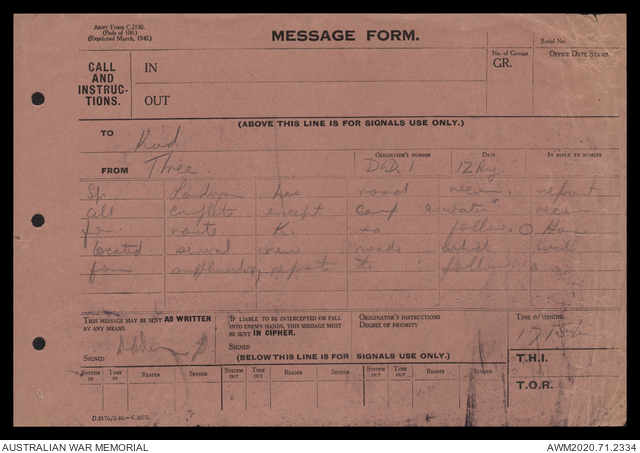 ARMY FORM C.2130.
(Pads of 100.)
(Reprinted March, 1940.)
MESSAGE FORM.
Serial No.
CALL
AND
INSTRUC-
TIONS.
IN
OUT
No. of Groups
GR.
OFFICE DATE STAMP
(ABOVE THIS LINE IS FOR SIGNALS USE ONLY.)
TO
FROM Three
ORIGINATOR'S NUMBER
DATE
IN REPLY TO NUMBER
12 Aug.
has road recon. report
all except camp water recon
for route K. to follow. Have
located several new roads which will
form supplementary reports to follow
THIS MESSAGE MAY BE SENT AS WRITTEN
BY ANY MEANS.
SIGNED
IF LIABLE TO BE INTERCEPTED OR FALL
INTO ENEMY HANDS, THIS MESSAGE MUST
BE SENT IN CIPHER.
SIGNED
ORIGINATOR'S INSTRUCTIONS
DEGREE OF PRIORITY
TIME OF ORIGIN
(BELOW THIS LINE IS FOR SIGNALS USE ONLY.)
T.H.I.
T.O.R.
SYSTEM IN
TIME IN
READER
SENDER
SYSTEM OUT
TIME OUT
READER
SENDER
SYSTEM OUT
TIME OUT
READER
SENDER
AUSTRALIAN WAR MEMORIAL
AWM2020.71.2334